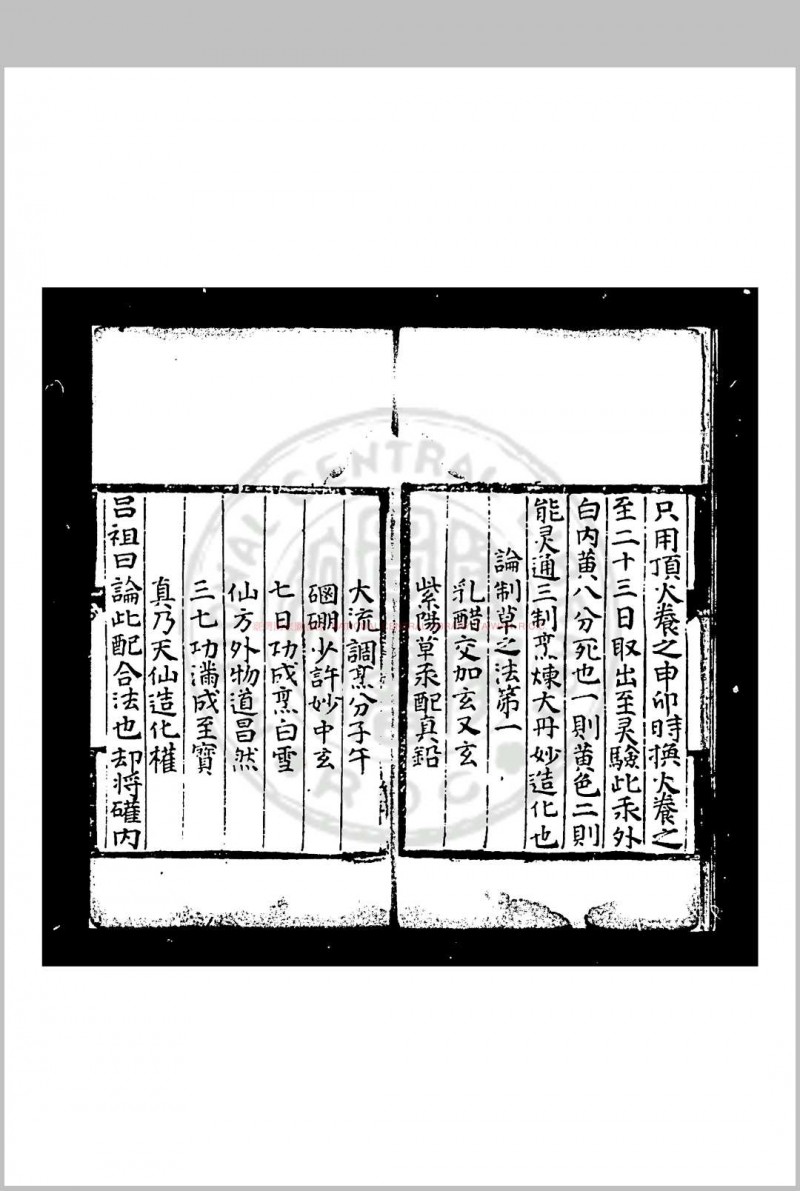 只用頂火養之申卯時撰火養之
至二十三日取出至灵驗此汞外
白内黄八分死也一則黄色二則
能灵通三制烹煉大丹妙造化也
論制草之法第一
乳醋交加玄又玄
紫陽草汞配真鉛
大流調烹分子午
硇硼少許妙中玄
七日功成烹白雪
仙方外物道昌然
三七功滿成至寶
真乃天仙造化權
吕祖曰論此配合法也却将礶内
NATIONAL CENTRAL
ROC